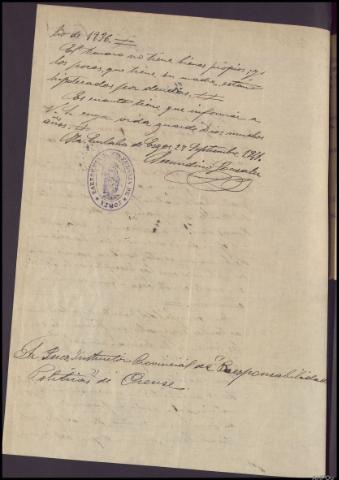 lio de 1936.
El mismo no tiene bienes propios, y
los pocos, que tiene su madre, están
hipotecados por deudas.
Es cuanto tiene que informar a
V. S. cuya vida guarde Dios muchos
años.
Septiembre 1941.
Gonzalez
Sr. Juez Instructor Provincial de Responsabilidades
Políticas de Orense.